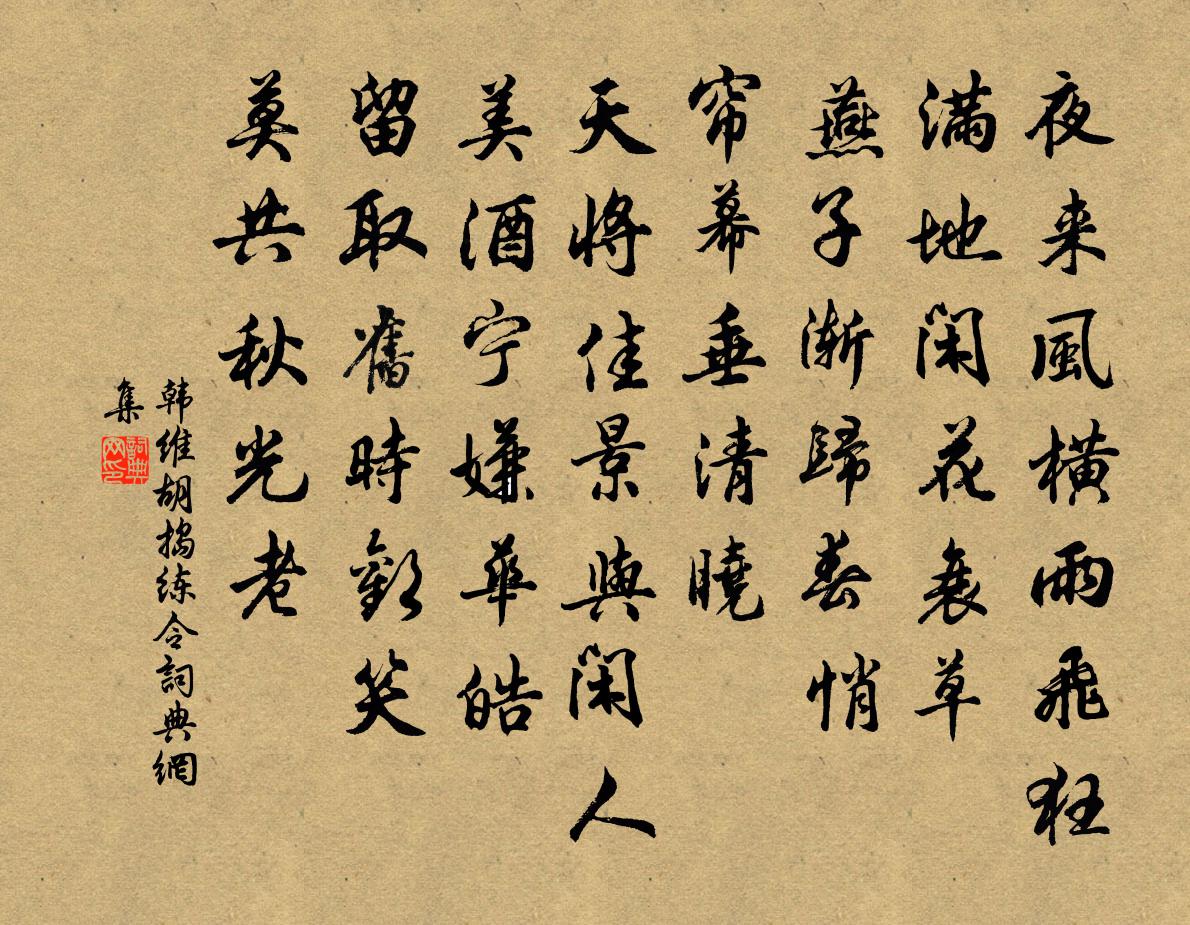 夜来風橫雨飛狂
满地闲花衰草
燕子漸歸春悄
帘幕垂清曉
天將佳景與闲人
美酒宁嫌華皓
留取舊時歡笑
莫共秋光老
韩维胡搗练令詞典網
集
詞典网印